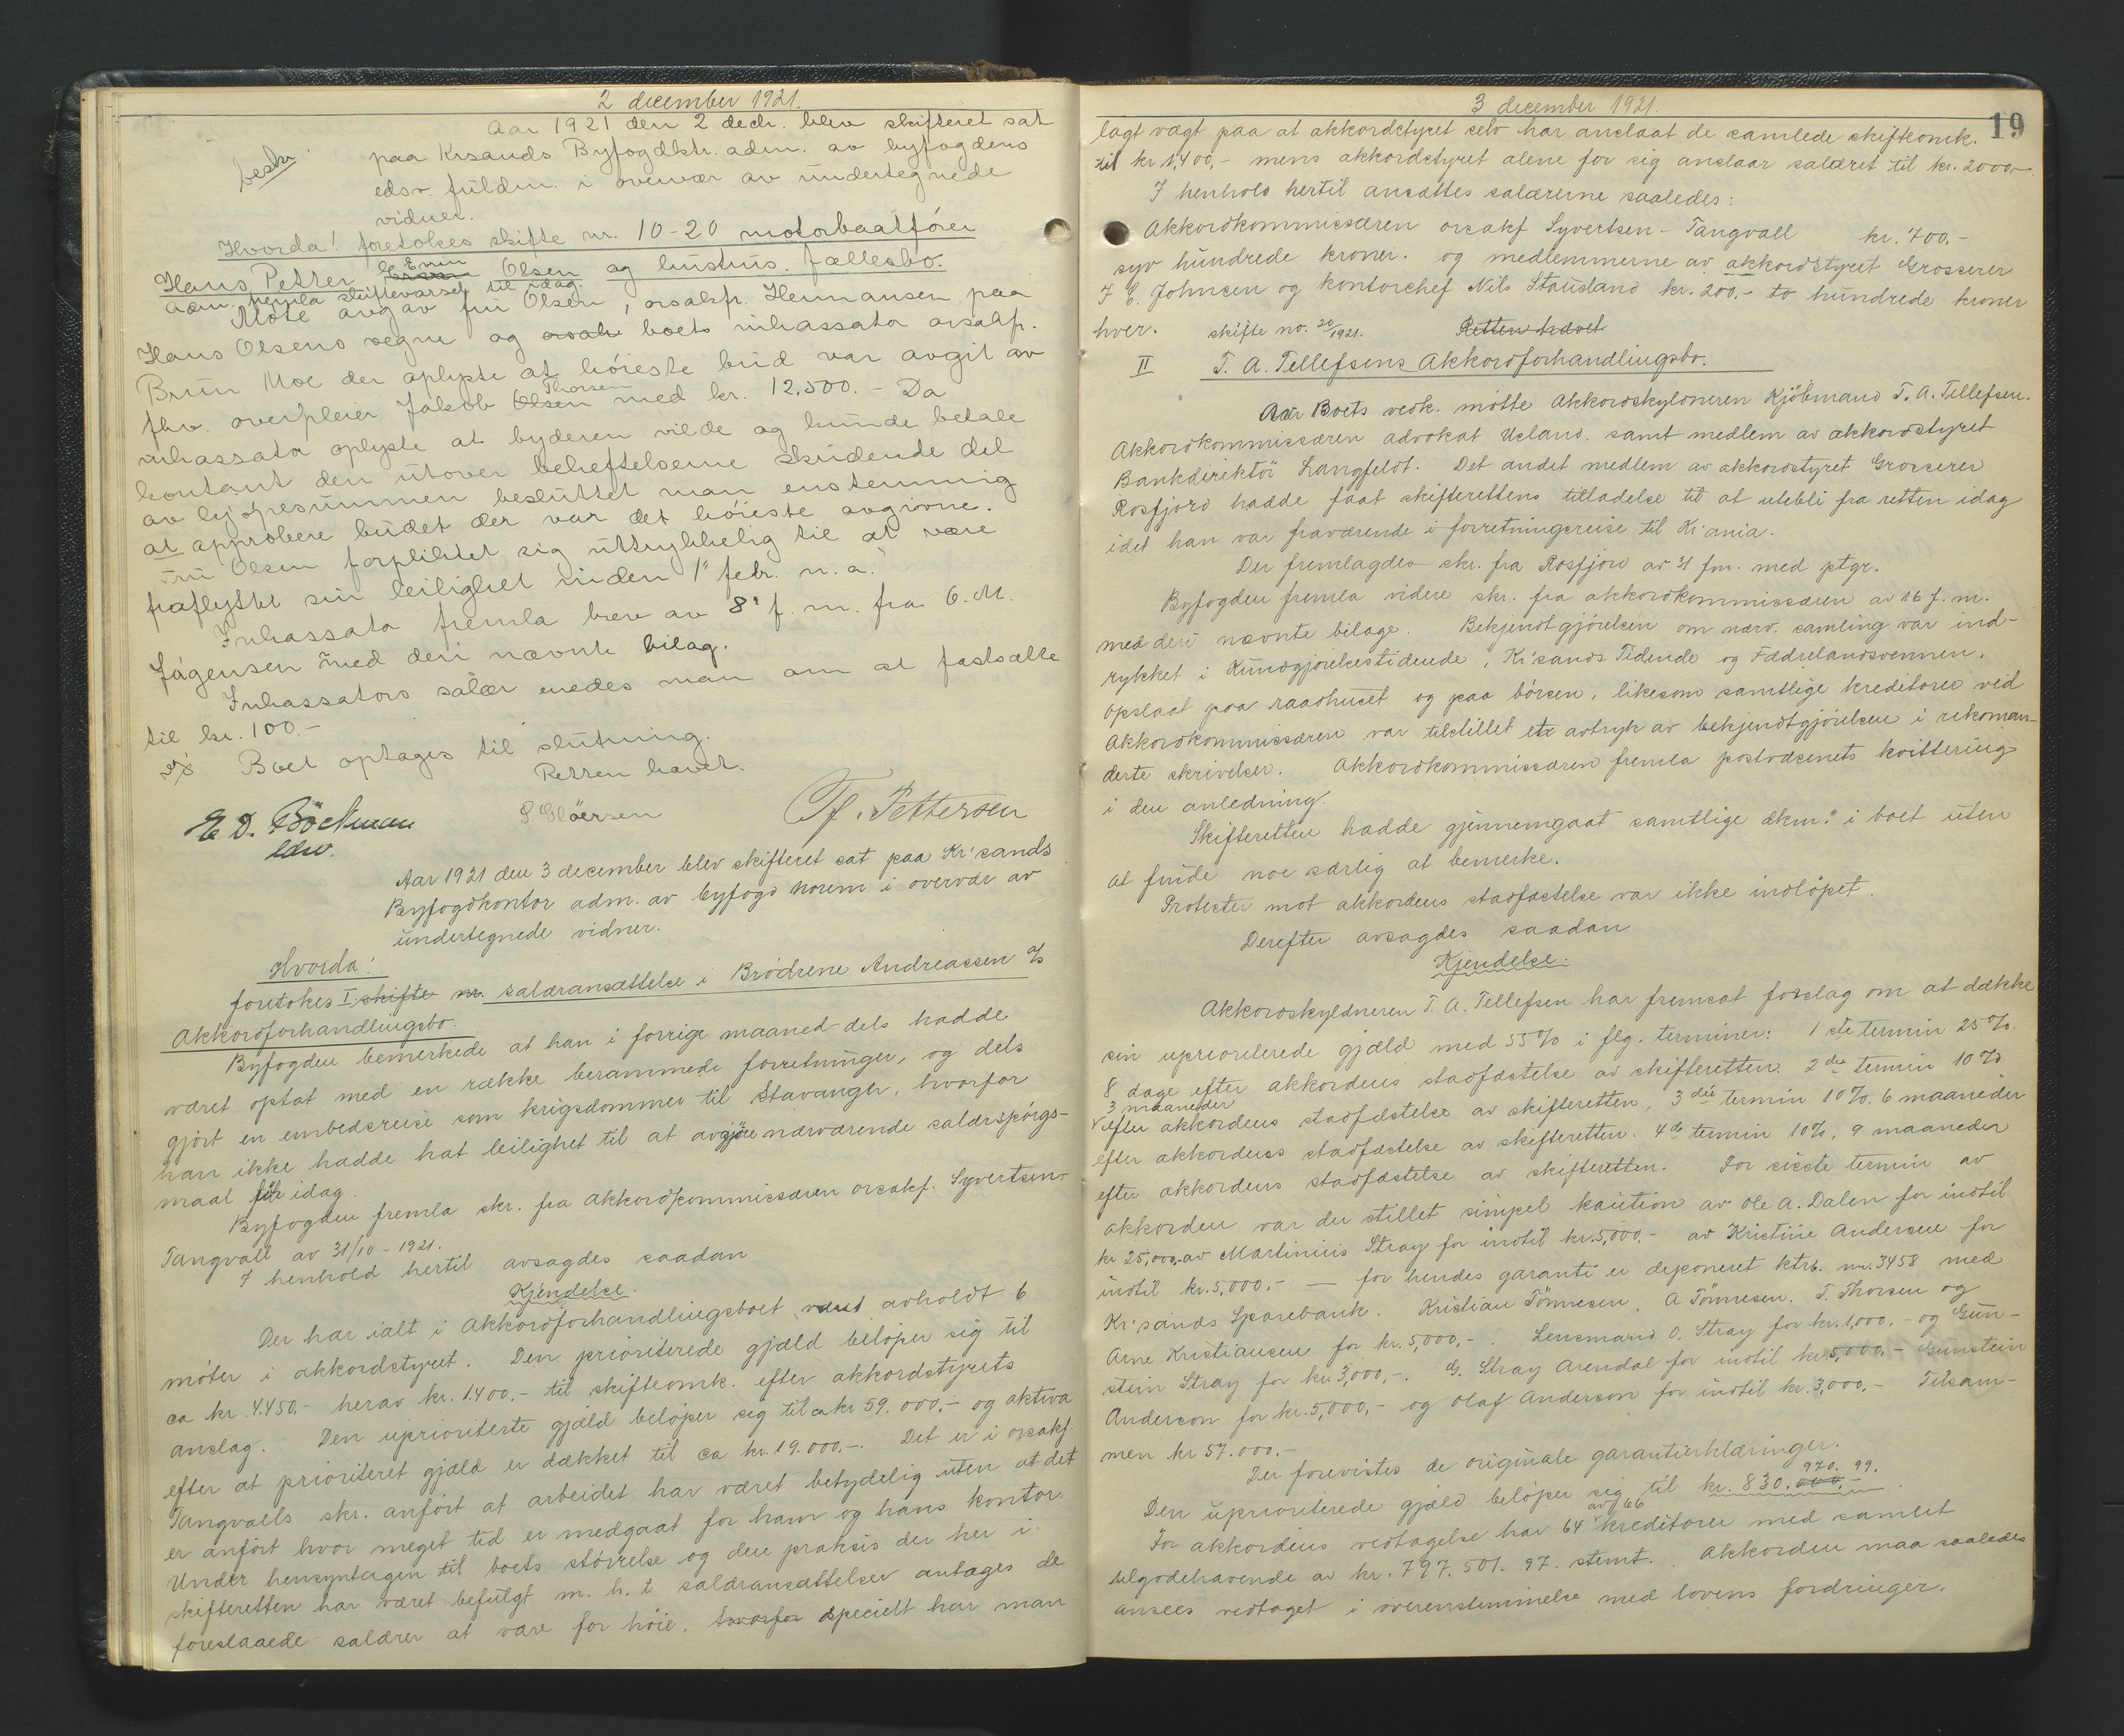 2 december 1921.
Aar 1921 den 2 decbr. blev skifteret sat
paa Krsands Byfogdktr. adm. av byfogdens
edsv. fuldm. i overvær av undertegnede
vidner.
beskr.
Hvorda! foretokes skifte nr. 10-20 motorbaatfører
Hans Petter Olsen og hustrus fællesbo.
Adm. fremla skiftevarsel til idag.
Møte avgav fru Olsen, orsakfr. Hermansen paa
Hans Olsens vegne og boets inkassator orsakfr.
Bruun Moe der oplyste at høieste bud var avgit av
fhv. overpleier Jakob Olsen Thorsen med kr. 12.500.- Da
inkassator oplyste at byderen vilde og kunde betale
kontant den utover beheftelserne skydende del
av kjøpesummen besluttet man enstemmig
at approbere budet der var det høieste avgivne.
Fru Olsen forpliktet sig uttrykkelig til at være
fraflyttet sin leilighet inden 1ste febr. n. a.
Inkassator fremla brev av 8de f. m. fra G. M.
Jørgensen med deri nævnte bilag.
Inkassators salær enedes man om at fastsætte
til kr. 100.-
Boet optages til slutning.
Retten hævet.
E. D. Böckman
edsv.
S. Gløersen
Tf. Pettersen
Aar 1921 den 3 december blev skifteret sat paa Kr'sands
Byfogdkontor adm. av byfogd Norem i overvær av
undertegnede vidner.
Hvorda:
foretokes I skifte nr. salæransættelse i Brødrene Andreassen A/S
Akkordforhandlingsbo.
Byfogden bemerkede at han i forrige maaned dels hadde
været optat med en række berammede forretninger, og dels
gjort en embedsreise som krigsdommer til Stavanger, hvorfor
han ikke hadde hat leilighet til at avgjøre nærværende salærspørgs-
maal før idag.
Byfogden fremla skr. fra akkordkommissæren orsakf. Syvertsen-
Tangvall av 31/10-1921.
I henhold hertil avsagdes saadan
Kjendelse.
Der har ialt i akkordforhandlingsboet været avholdt 6
møter i akkordstyret. Den prioriterede gjæld beløper sig til
ca kr. 4.450,- herav kr. 1.400,- til skifteomk. efter akkordstyrets
anslag. Den uprioriterte gjæld beløper sig til ca kr 59.000,- og aktiva
efter at prioriteret gjæld er dækket til ca kr. 19.000.-. Det er i orsakf.
Tangvalls skr. anført at arbeidet har været betydelig uten at det
er anført hvor meget tid er medgaat for ham og hans kontor.
Under hensyntagen til boets størrelse og den praksis der her i
skifteretten har været befulgt m. h. t. salæransættelser antages de
foreslaaede salærer at være for høie, hvorfor specielt har man
3 december 1921.
19
lagt vægt paa at akkordstyret selv har anslaat de samlede skifteomk.
til kr 1,400,- mens akkordstyret alene for sig anslaar salæret til kr. 2000.-
I henhold hertil ansættes salærerne saaledes:
Akkordkommissæren orsakf Syvertsen-Tangvall kr. 700.-
syv hundrede kroner. og medlemmerne av akkordstyret Grosserer
J. C. Johnsen og kontorchef Nils Stausland kr. 200,- to hundrede kroner
hver. skifte no. 20/1921. Retten hævet
II T. A. Tellefsens Akkordforhandlingsbo.
Aar Boets vedk. møtte Akkordskyldneren Kjøbmand T. A. Tellefsen.
Akkordkommissæren advokat Ueland. samt medlem av akkordstyret
Bankdirektör Langfeldt. Det andet medlem av akkordstyret Grosserer
Rosfjord hadde faat skifterettens tilladelse til at utebli fra retten idag
idet han var fraværende i forretningsreise til Kr'ania.
Der fremlagdes skr. fra Rosfjord av 31 fm. med ptgr.
Byfogden fremla videre skr. fra akkordkommissæren av 16 f. m.
med deri nævnte bilage. Bekjendtgjørelsen om nærv. samling var ind-
rykket i Kundgjørelsestidende, Kr'sands Tidende og Fædrelandsvennen,
opslaat paa raadhuset og paa børsen, likesom samtlige kreditorer ved
Akkordkommissæren var tilstillet et avtryk av bekjendtgjørelsen i rekoman-
derte skrivelser. Akkordkommissæren fremla postvæsenets kvittering
i den anledning.
Skifteretten hadde gjennemgaat samtlige dkm. i boet uten
at finde noe særlig at bemerke.
Protester mot akkordens stadfæstelse var ikke indløpet.
Derefter avsagdes saadan
Kjendelse.
Akkordskyldneren T. A. Tellefsen har fremsat forslag om at dække
sin uprioriterede gjæld med 55% i flg. terminer: 1ste termin 25%.
8 dage efter akkordens stadfæstelse av skifteretten. 2den termin 10%
3 maaneder
efter akkordens stadfæstelse av skifteretten, 3die termin 10%. 6 maaneder
efter akkordens stadfæstelse av skifteretten. 4de termin 10%, 9 maaneder
efter akkordens stadfæstelse av skifteretten. For sidste termin av
akkorden var der stillet simpel kaution av Ole A. Dalen for indtil
kr 25,000,- av Martinius Stray for indtil kr. 5,000.- av Kristine Andersen for
indtil kr. 5,000.- — for hendes garanti er deponeret ktrb. nr. 3458 med
Kr'sands Sparebank. Kristian Tönnesen, A Tönnesen. T. Thorsen og
Arne Kristiansen for kr. 5,000,-. Lensmand O. Stray for kr. 1,000.- og Gun-
stein Stray for kr. 3,000,-. G. Stray Arendal for indtil kr 5,000,- Gunstein
Anderson for kr. 5,000,- og Olaf Anderson for indtil kr. 3,000,- Tilsam-
men kr 57.000,-
Der forevistes de originale garantierklæringer.
Den uprioriterede gjæld beløper sig til kr. 830.000.- 970. 99.
For akkordens vedtagelse har 64 av 66 kreditorer med samlet
tilgodehavende av kr. 797.501.97. stemt. Akkorden maa saaledes
ansees vedtaget i overenstemmelse med lovens fordringer.